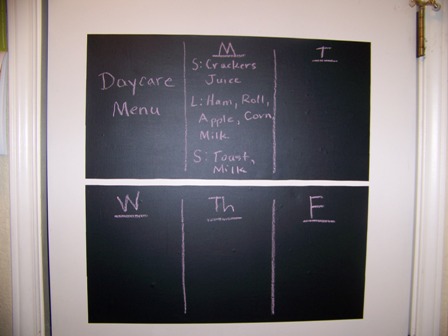 Daycare
Menu
M
S: Crackers
Juice
L: Ham, Roll,
Apple, Corn,
Milk
S: Toast,
Milk
T
W
Th
F